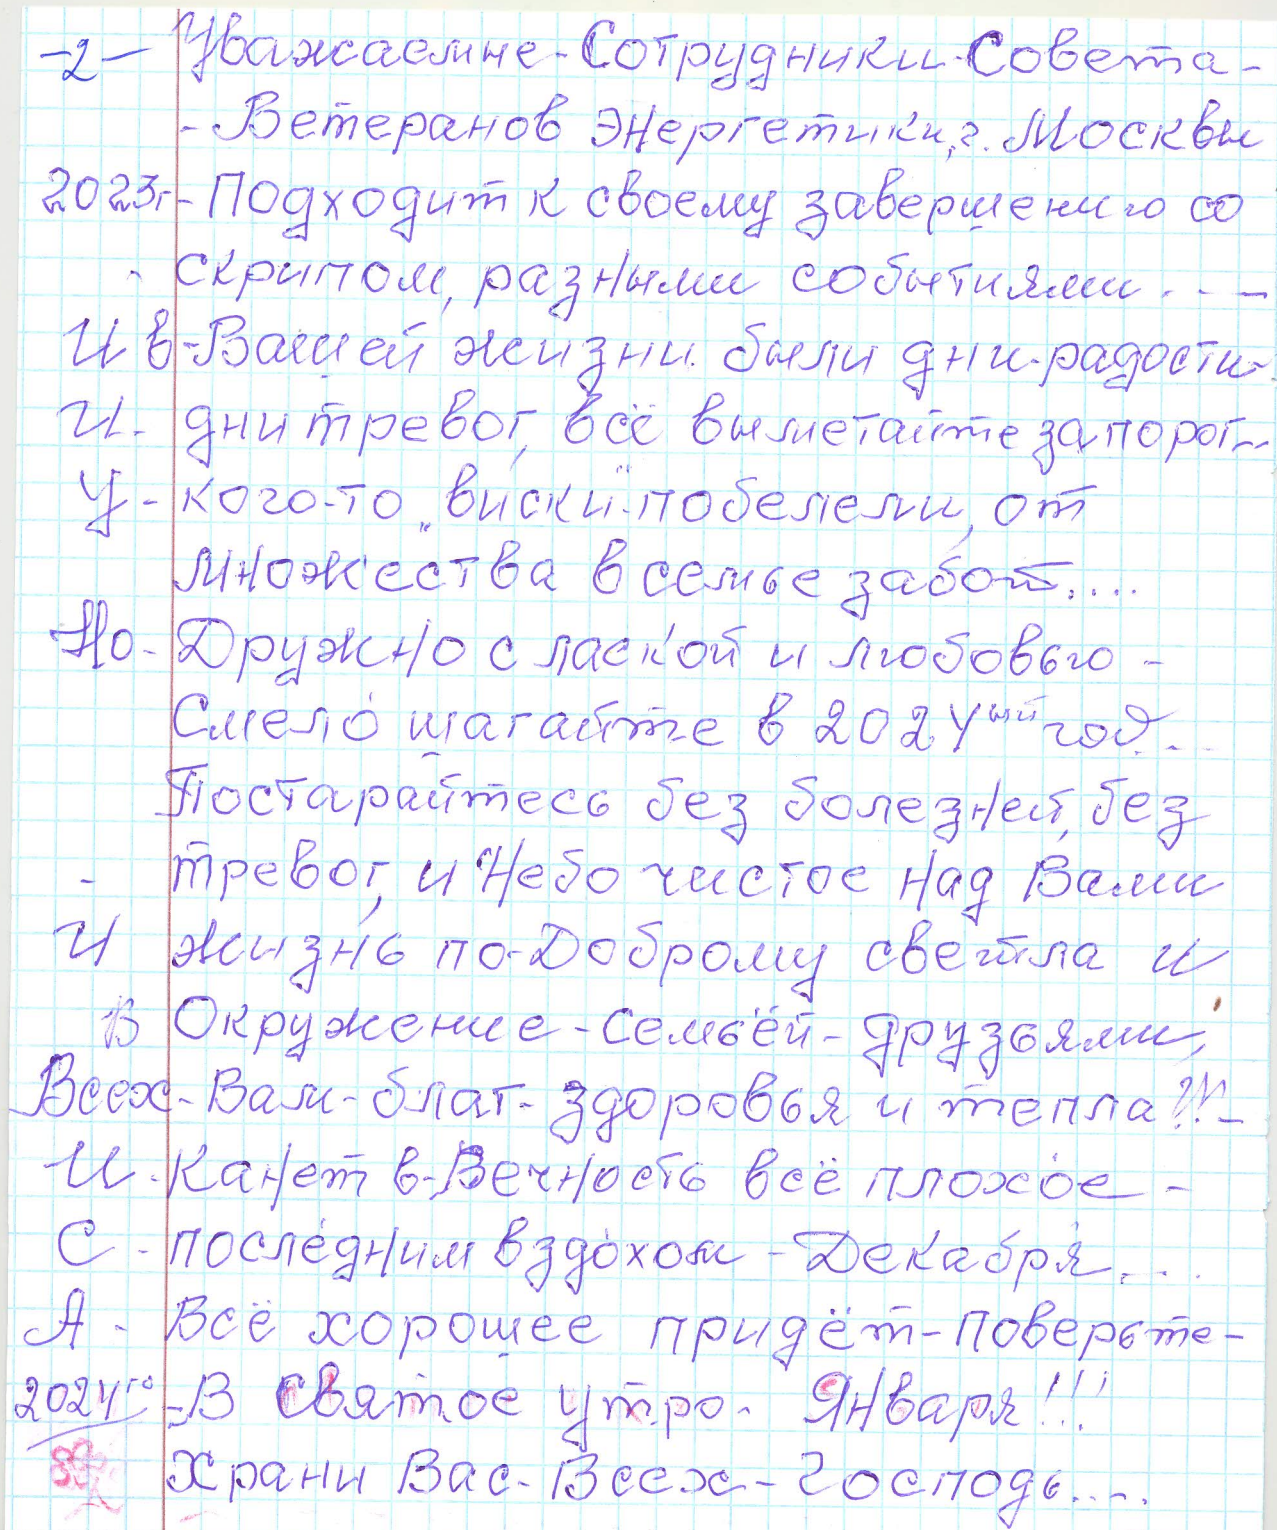 -2- Уважаемые-Сотрудники-Совета-
-Ветеранов Энергетики, г. Москвы
2023г-Подходит к своему завершению со
скрипом, разными событиями...-
И в-Вашей жизни были дни-радости-
И- дни тревог, всё выметайте за порог...
У- кого-то „виски"-побелели, от
множества в семье забот....
Но- Дружно с лаской и любовью-
Смело шагайте в 2024ый год...
Постарайтесь без болезней, без
- тревог, и Небо чистое над Вами
И жизнь по-Доброму светла и
В Окружение-Семьёй-друзьями,
Всех-Вам-благ-здоровья и тепла!!!-
И-Канет в-Вечность всё плохое-
С-последним вздохом-Декабря...
А- Всё хорошее придёт-поверьте-
2024го -В святое утро- Января!!!
Храни Вас-Всех-Господь....